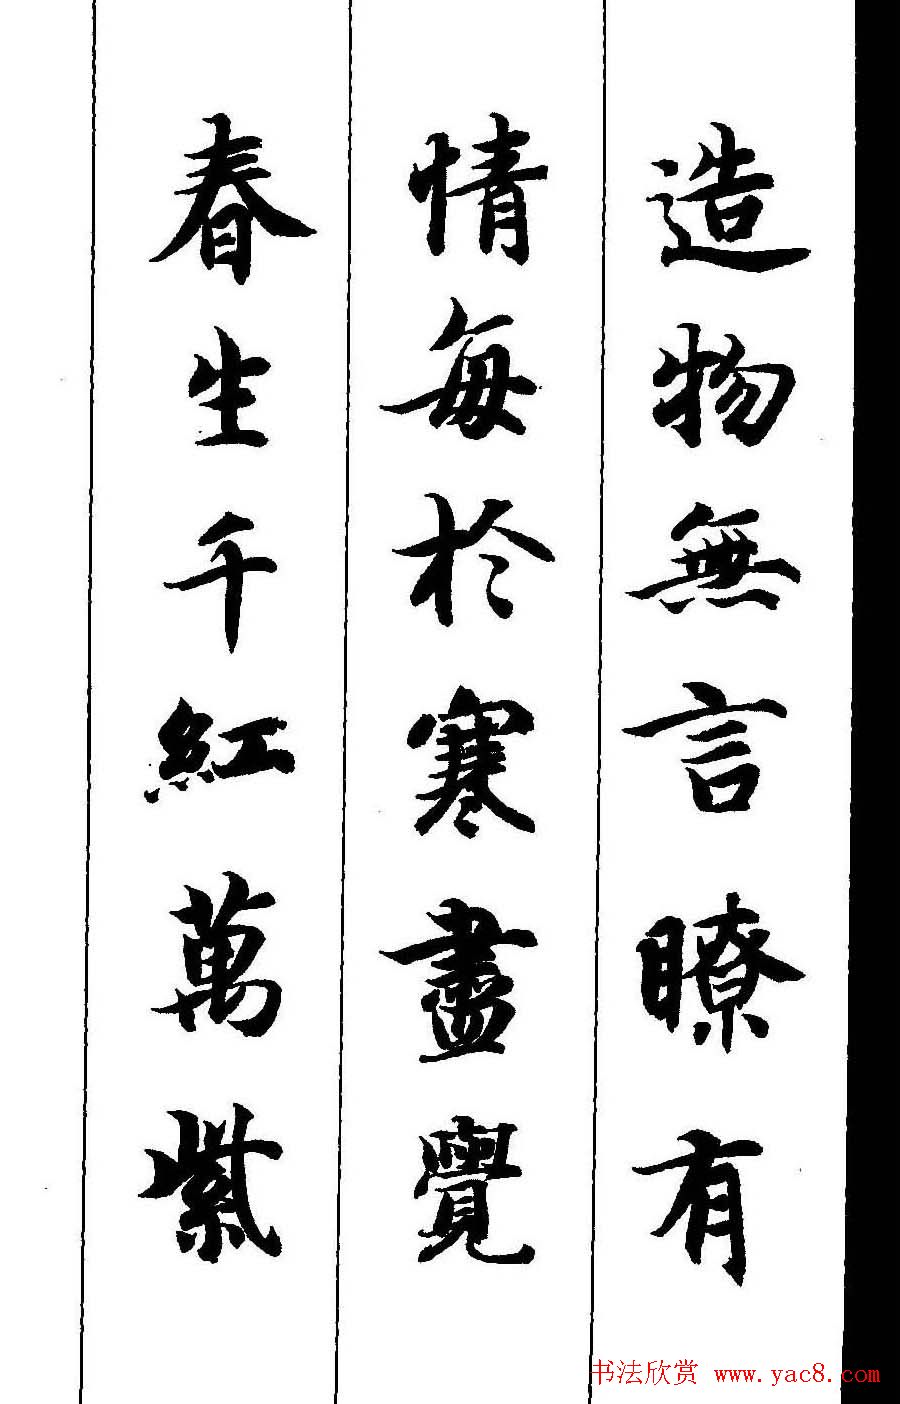 造物無言瞭有
情每於寒盡覺
春生千紅萬紫
书法欣赏 www.yac8.com